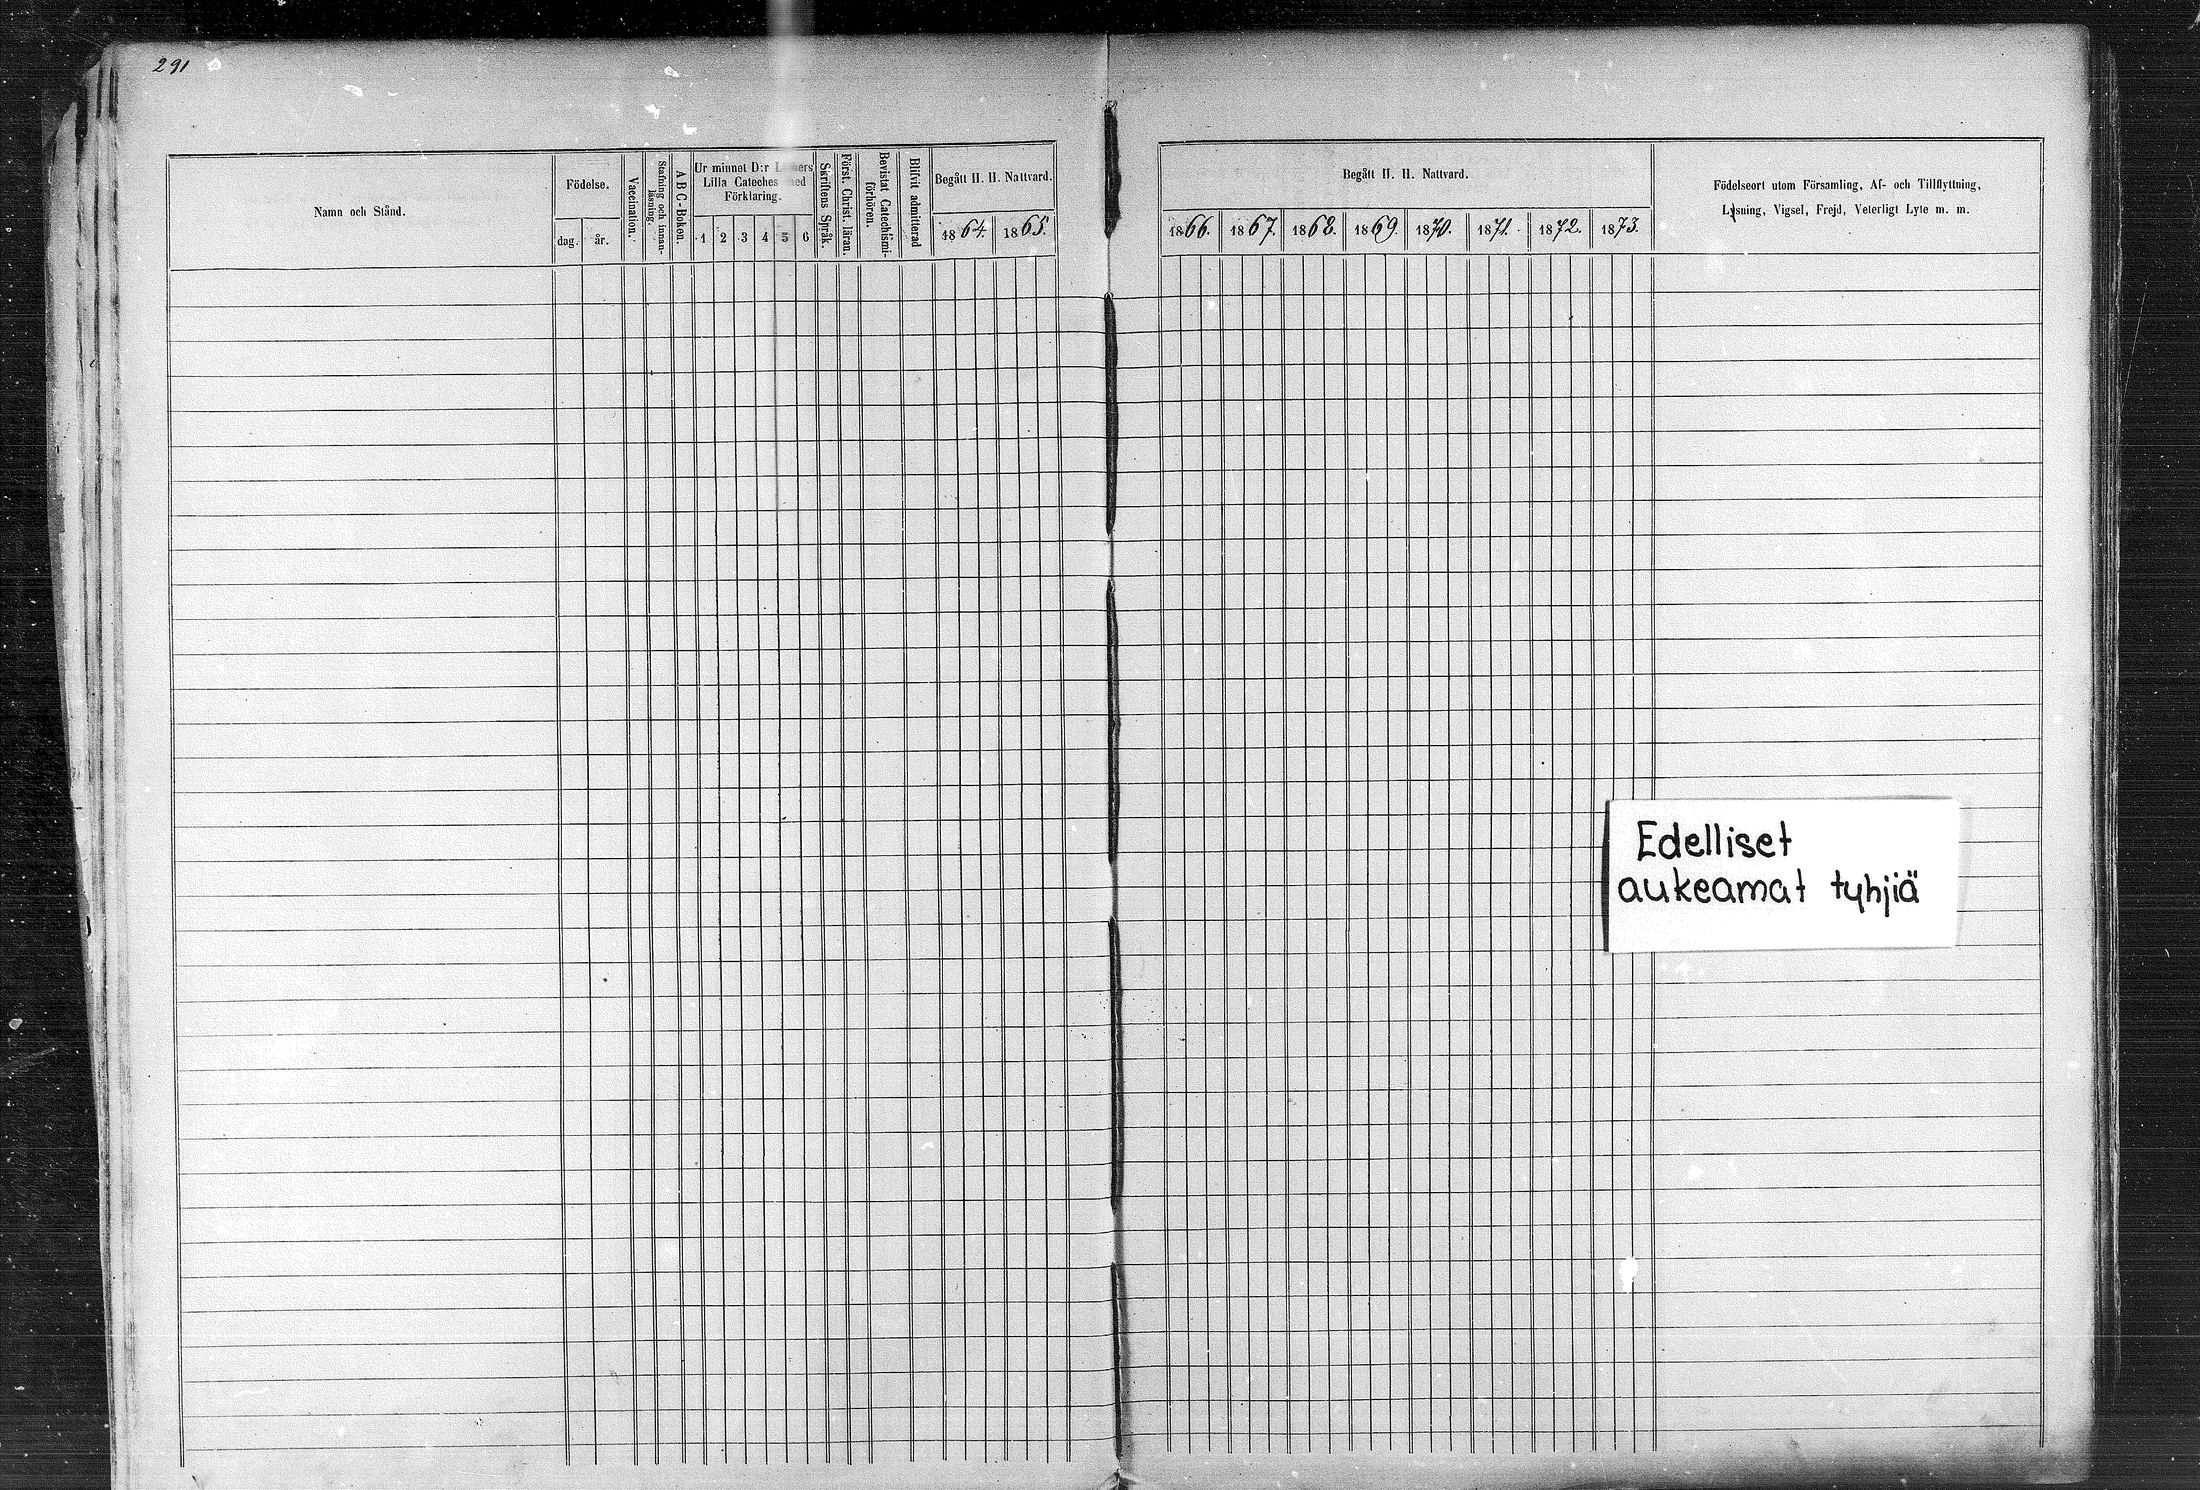 291
Namn och Stånd.
Födelse.
dag.
år.
Vaccination.
Stafning och innan-
läsning.
A B C-Bokon.
Ur minnet D:r
Lilla Cateches
Förklaring.
1 2 3 4 5 6
Skriftens Språk.
Först. Christ. läran.
Bevistat Catechismi-
förhören.
Blifvit admitterad
Begått H. H. Nattvard.
1864. 1865.
Begått H. H. Nattvard.
1866. 1867. 1868. 1869. 1870. 1871. 1872. 1873.
Födelseort utom Församling, Af- och Tillflyttning,
Lysning, Vigsel, Frejd, Veterligt Lyte m. m.
Edelliset
aukeamat tyhjiä